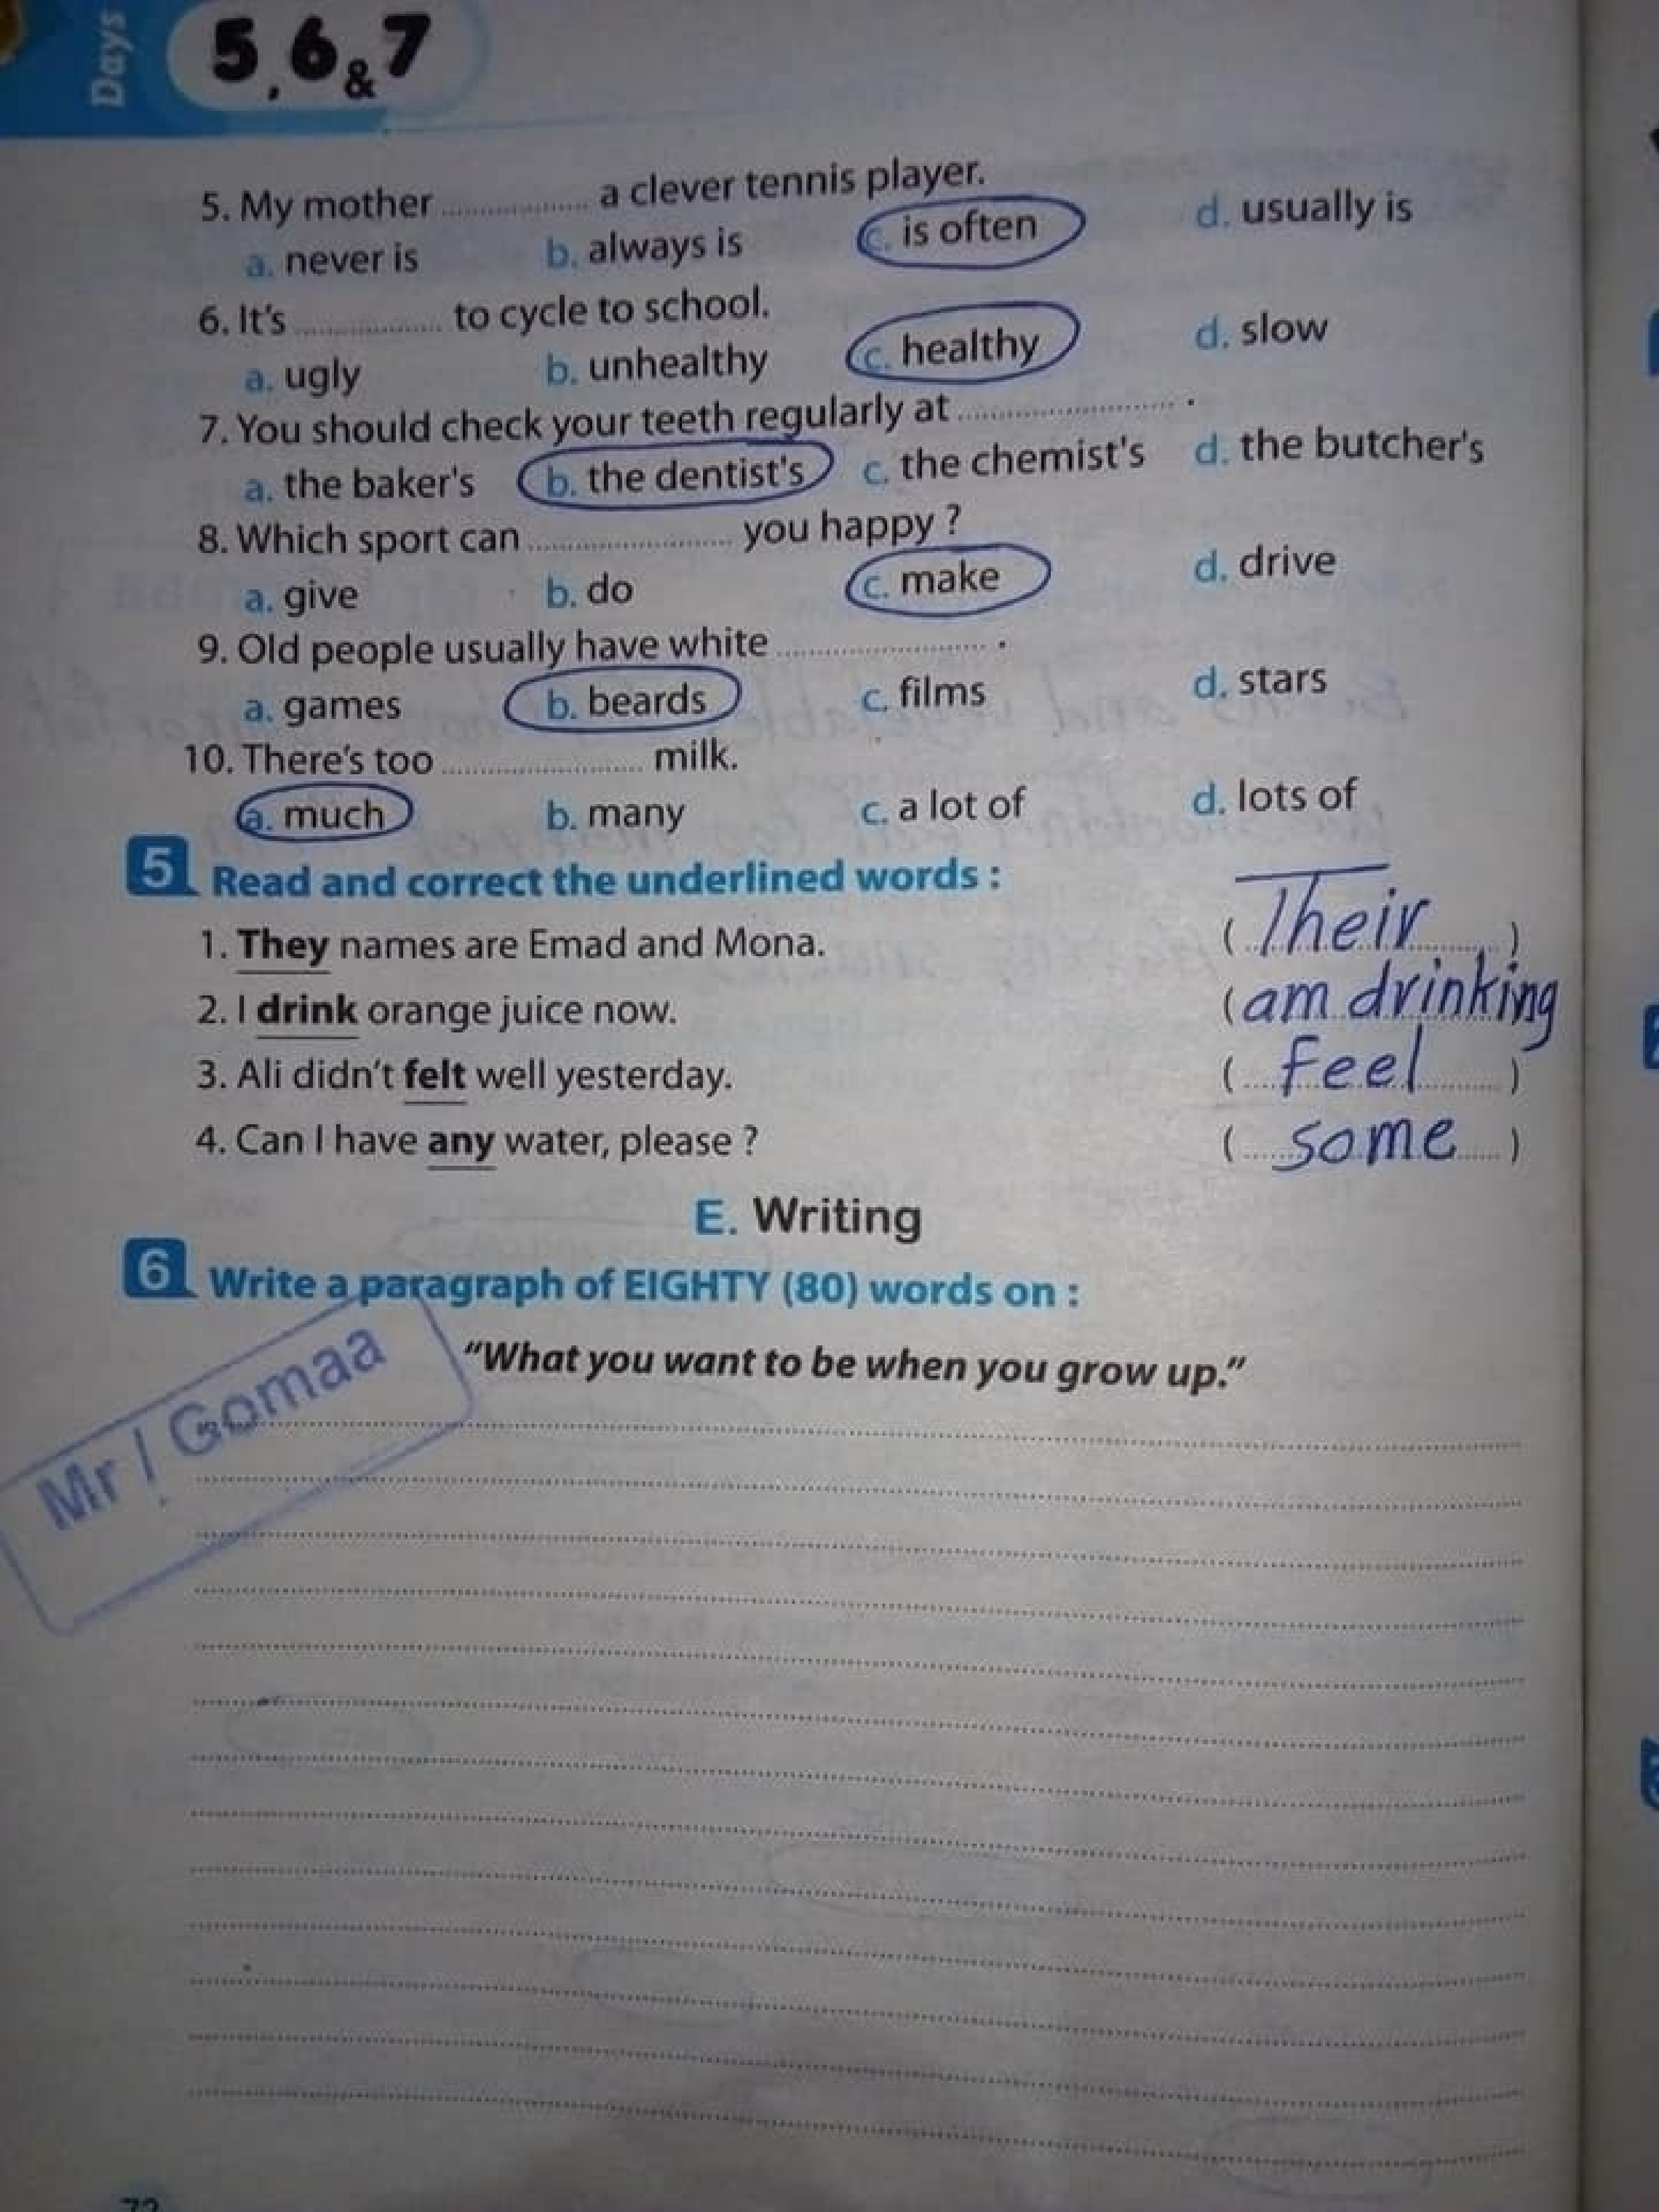 Days
5, 6 & 7
5. My mother .................. a clever tennis player.
a. never is b. always is c. is often d. usually is
6. It's .................. to cycle to school.
a. ugly b. unhealthy c. healthy d. slow
7. You should check your teeth regularly at .......................... .
a. the baker's b. the dentist's c. the chemist's d. the butcher's
8. Which sport can ......................... you happy ?
a. give b. do c. make d. drive
9. Old people usually have white ......................... .
a. games b. beards c. films d. stars
10. There's too ......................... milk.
a. much b. many c. a lot of d. lots of
5 Read and correct the underlined words :
1. They names are Emad and Mona. ( Their )
2. I drink orange juice now. ( am drinking
3. Ali didn't felt well yesterday. ( feel )
4. Can I have any water, please ? ( some )
E. Writing
6 Write a paragraph of EIGHTY (80) words on :
"What you want to be when you grow up."
Mr / Gomaa